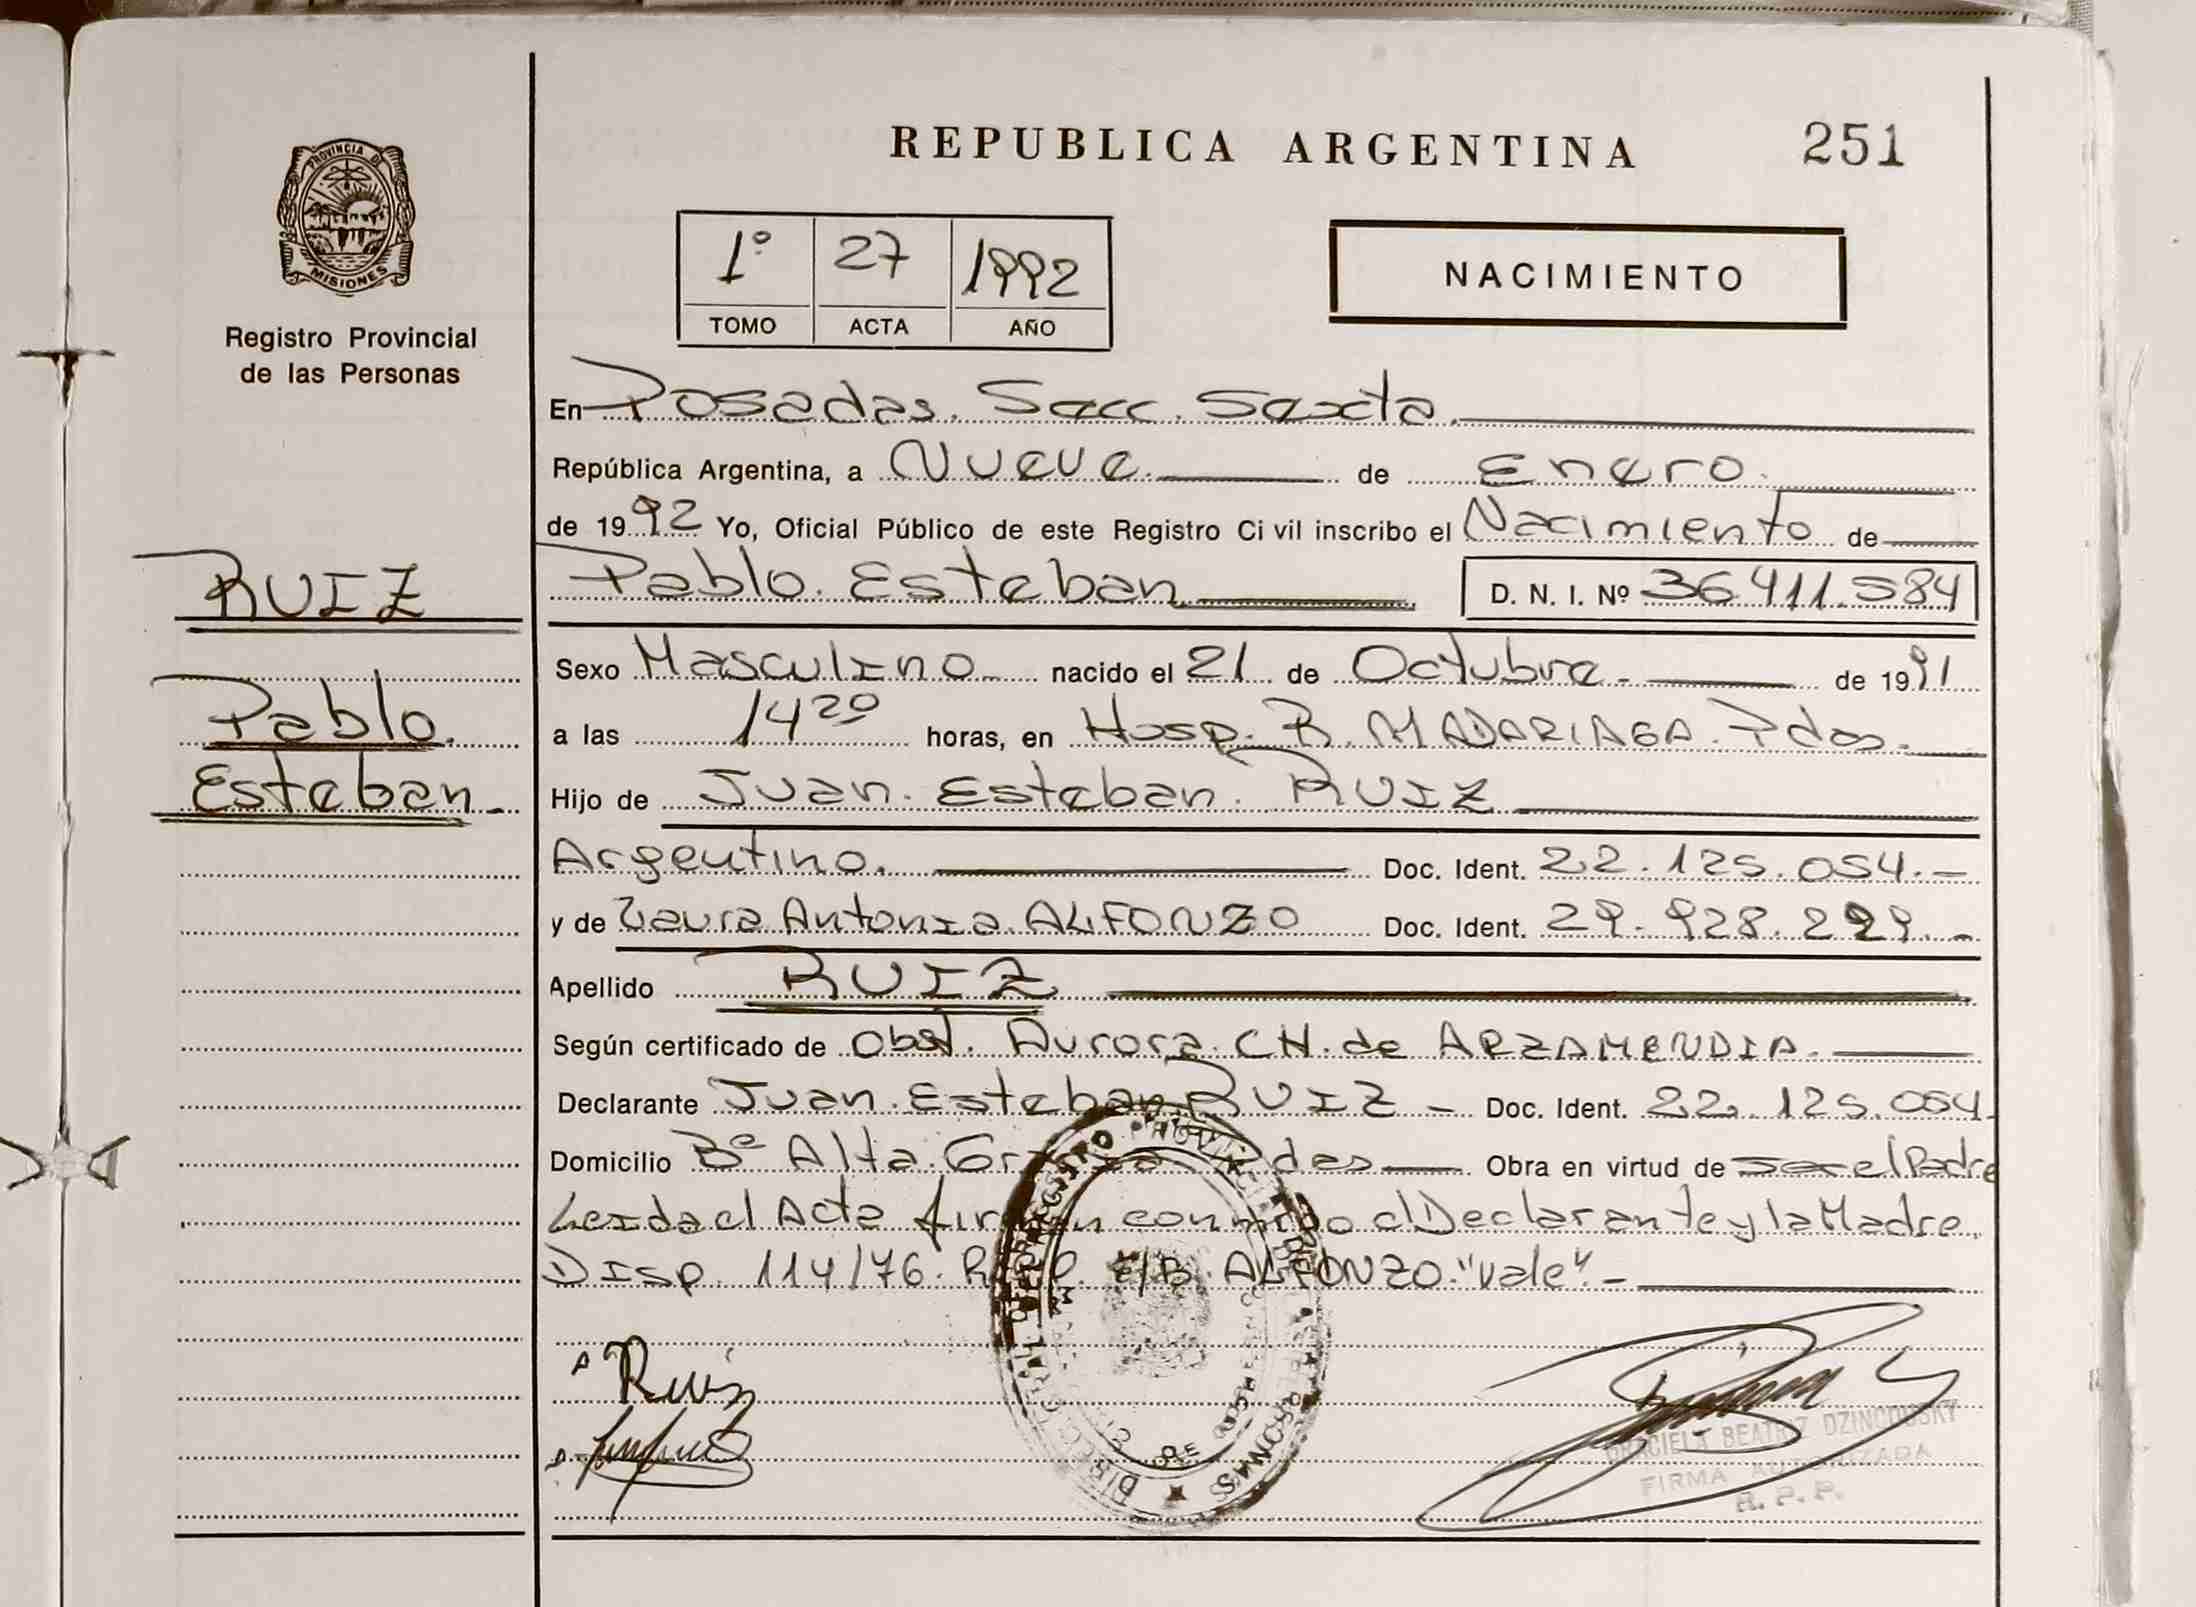 REPUBLICA ARGENTINA 251
PROVINCIA DE
MISIONES
Registro Provincial
de las Personas
1º 27 1992
TOMO ACTA AÑO
NACIMIENTO
En Posadas. Secc. Sexta.
República Argentina, a Nueve. de Enero.
de 1992 Yo, Oficial Público de este Registro Civil inscribo el Nacimiento de
RUIZ
Pablo. Esteban D. N. I. Nº 36.411.584
Sexo Masculino nacido el 21 de Octubre - de 1991
Pablo.
a las 14 20 horas, en Hosp. R. MADARIAGA. Pdas.
Esteban-
Hijo de Juan. Esteban. RUIZ
Argentino. Doc. Ident. 22.125.054.-
y de Laura Antonia ALFONZO Doc. Ident. 29.928.229.-
Apellido RUIZ
Según certificado de Obst. Aurora CH. de ARZAMENDIA.
Declarante Juan. Esteban RUIZ - Doc. Ident. 22.125.054.
Domicilio Bº Alta Pdas Obra en virtud de ser el Padre
Leida el Acta firman conmigo el Declarante y la Madre.
Disp. 114/76. E/B. ALFONZO "vale".-
Ruiz
GRACIELA BEATRIZ DZINCOUSKY
FIRMA AUTORIZADA
R. P. P.